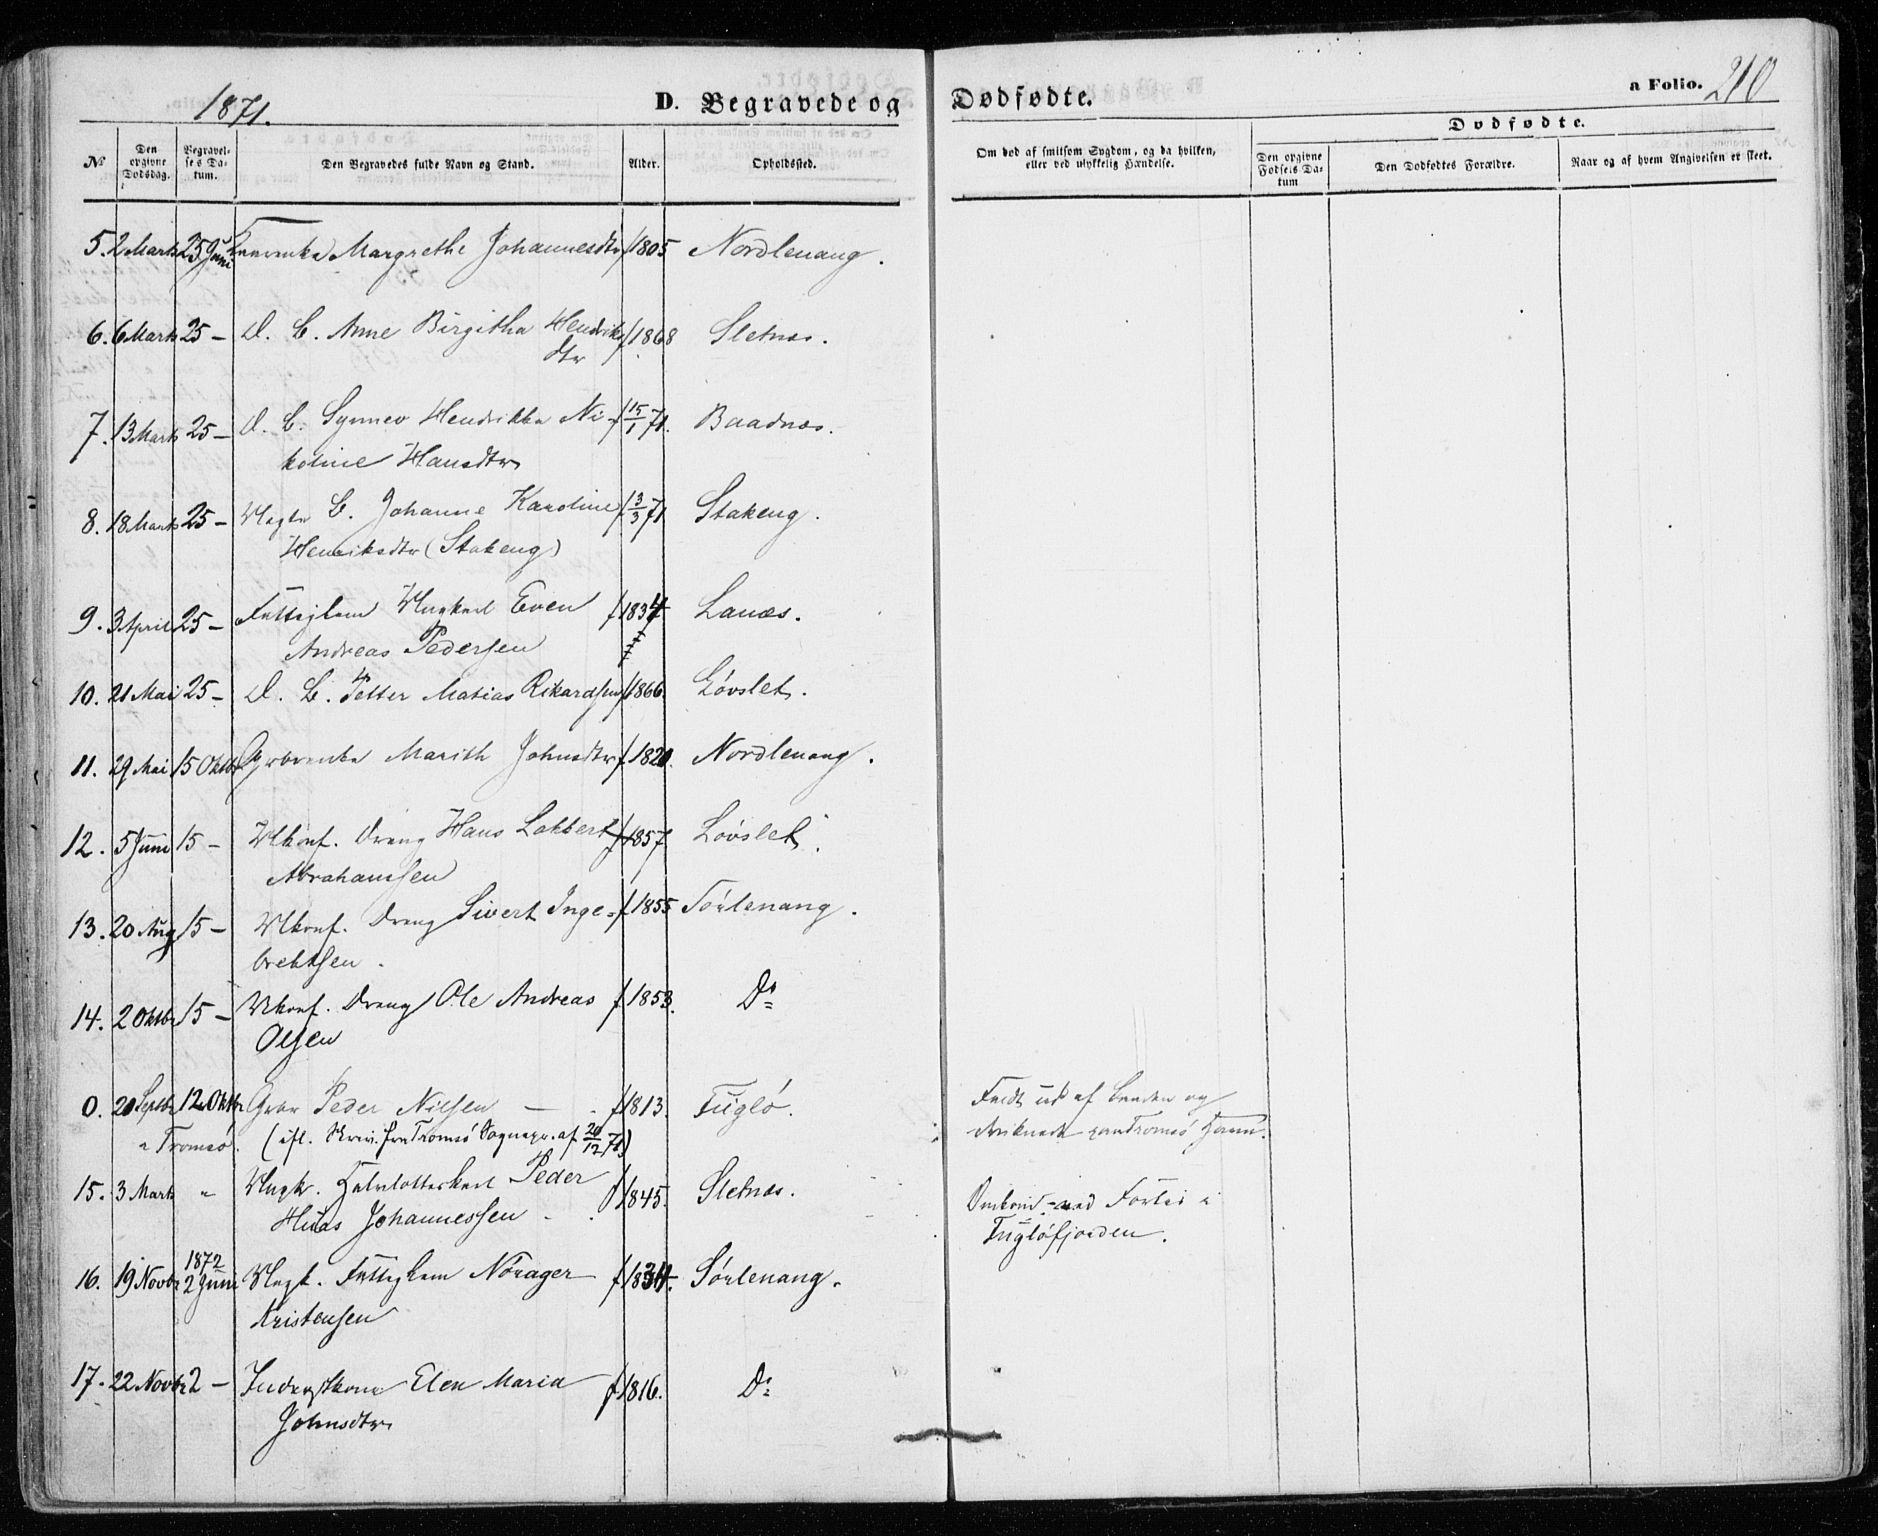 1871.
D. Begravede og Dødfødte.
a Folio. 210
No
Den opgivne Dødsdag.
Begravelses Datum.
Den Begravedes fulde Navn og Stand.
Alder.
Opholdssted.
Om død af smitsom Sygdom, og da hvilken, eller ved ulykkelig Hændelse.
Dødfødte.
Den opgivne Fødsels-Datum
Den Dødfødtes Forældre.
Naar og af hvem Angivelsen er skeet.
5. 2 Marts 25 Juni Margrethe Johannesdtr f 1805 Nordlenang.
6. 6 Marts 25 – D. B. Anne Birgitha Hendriks f 1868 Sletnæs.
dtr
7. 13 Marts 25 – D. B. Synnev Hendrikke Ni- f 15/1 71. Baadnæs.
koline Hansdtr
8. 18 Marts 25 – B. Johanne Karoline f 3/3 71 Stakeng.
Henriksdtr (Stakeng)
9. 3 April 25 – Fattiglem Ungkarl Even f 1834 Lanæs.
Andreas Pedersen
10. 21 Mai 25 – D. B. Petter Matias Rikardsen f 1866. Løvslet.
11. 29 Mai 15 Oktbr Marith Johnsdtr f 1820. Nordlenang.
12. 5 Juni 15 – Ukonf. Dreng Hans Lakbert f 1857 Løvslet.
Abrahamsen
13. 20 Aug 15 – Ukonf. Dreng Sivert Inge- f 1855 Sørlenang.
brektsen.
14. 2 Oktbr 15 – Ukonf. Dreng Ole Andreas f 1853. Do
Olsen
0. 20 Septbr 12 Oktbr Peder Nilsen – f 1813. Fuglø. Faldt ud af Baaden og
i Tromsø. (ifl. Skriv. fra Tromsø Sognepr. af 20/12 71) druknede paa Tromsø Havn.
15. 3 Marts " Ungk. Halvlotteskarl Peder f 1845. Sletnæs. Omkom ved Forlis i
Johannessen – Fugløfjorden.
1872
16. 19 Novbr 2 Juni Ungk. Fattiglem f 1834. Sørlenang.
Kristensen
17. 22 Novbr 2 – Inderstkone Elen Maria f 1816. Do
Johnsdtr